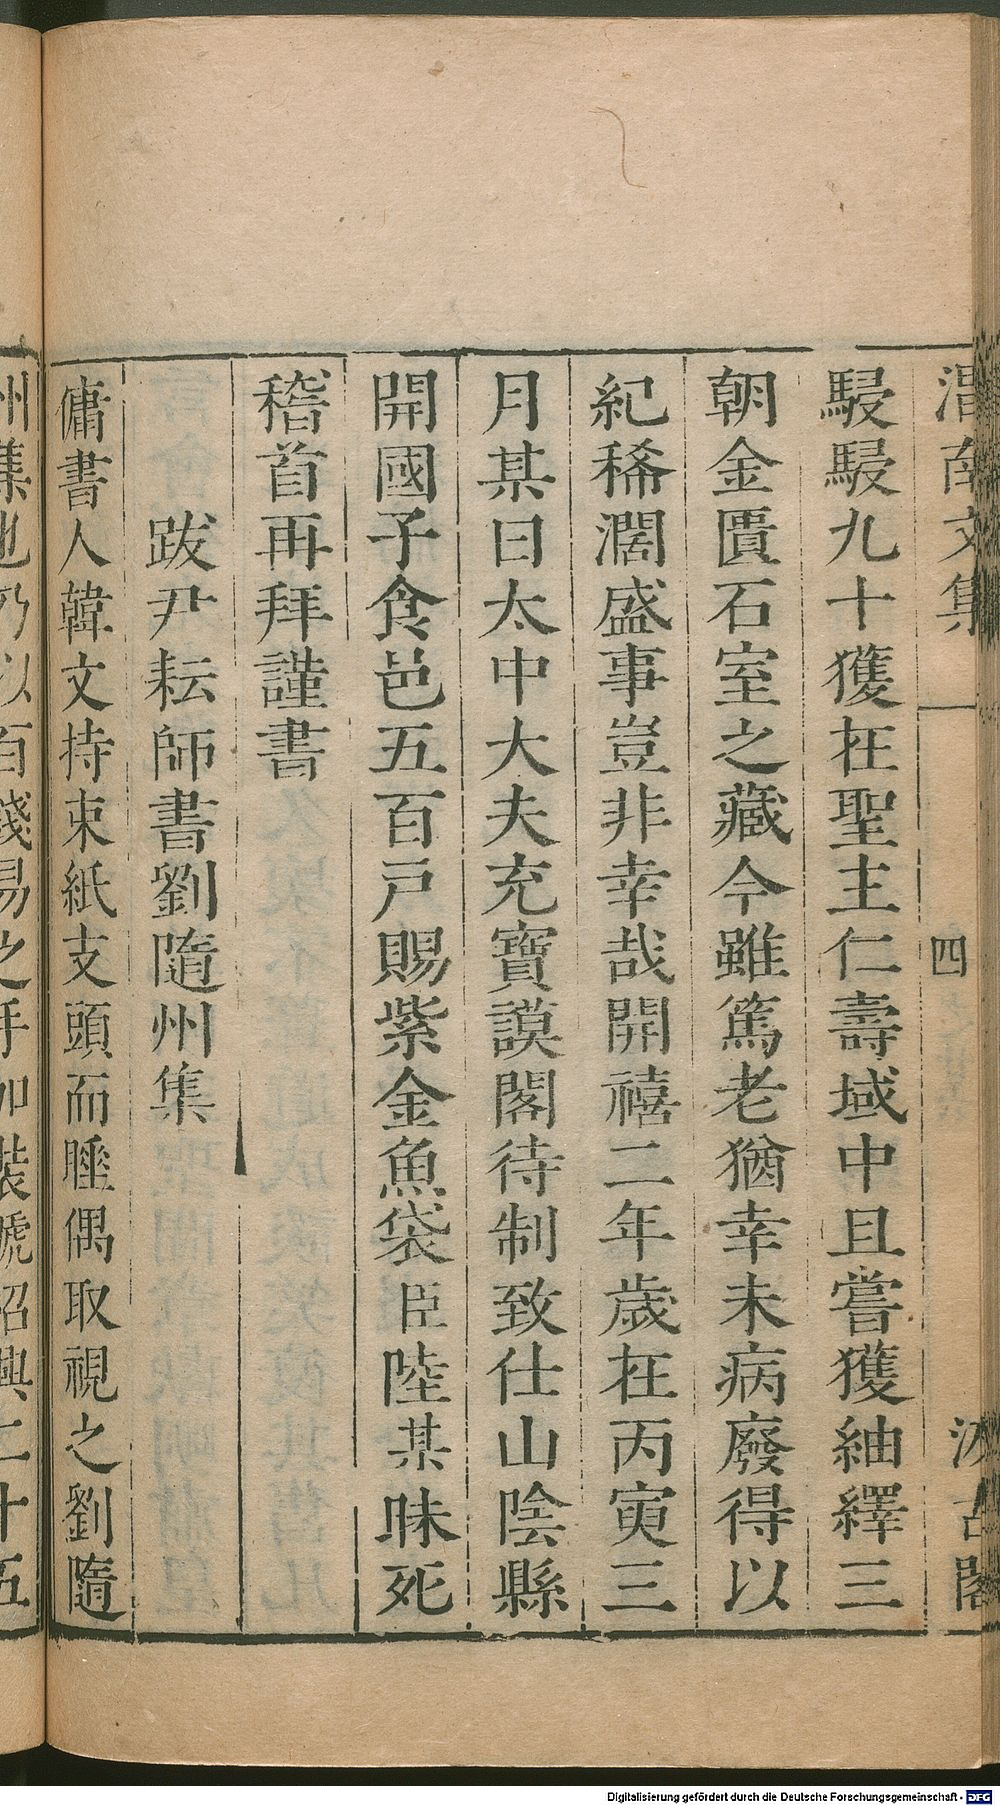 渭南文集 四 汲古閣
駸駸九十獲在聖主仁壽域中且嘗獲紬繹三
朝金匱石室之藏今雖篤老猶幸未病廢得以
紀稀濶盛事豈非幸哉開禧二年歲在丙寅三
月某日太中大夫充寶謨閣待制致仕山陰縣
開國子食邑五百戸賜紫金魚袋臣陸某昧死
稽首再拜謹書
跋尹耘師書劉隨州集
傭書人韓文持束紙支頭而睡偶取視之劉隨
州集也乃以百錢易之手加裝褫紹興二十五
Digitalisierung gefördert durch die Deutsche Forschungsgemeinschaft - DFG